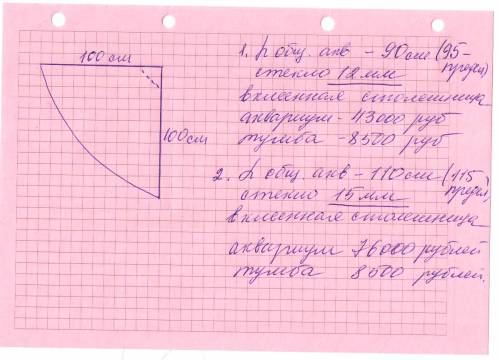 100 см
100 см
1. h общ. акв - 90 см (95 -
предел)
стекло 12 мм
вклеенная столешница
аквариум - 43000 руб
тумба - 8500 руб
2. h общ. акв - 110 см (115
предел)
стекло 15 мм
вклеенная столешница
аквариум 76000 рублей
тумба 8500 рублей.